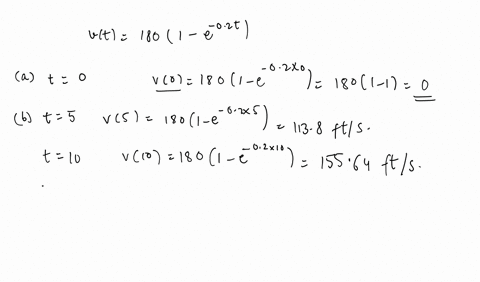 v(t) = 180 (1 - e^{-0.2t})
(a) t = 0 v(0) = 180 (1 - e^{-0.2×0}) = 180 (1-1) = 0
(b) t = 5 v(5) = 180 (1 - e^{-0.2×5}) = 113.8 ft/s.
t = 10 v(10) = 180 (1 - e^{-0.2×10}) = 155.64 ft/s.